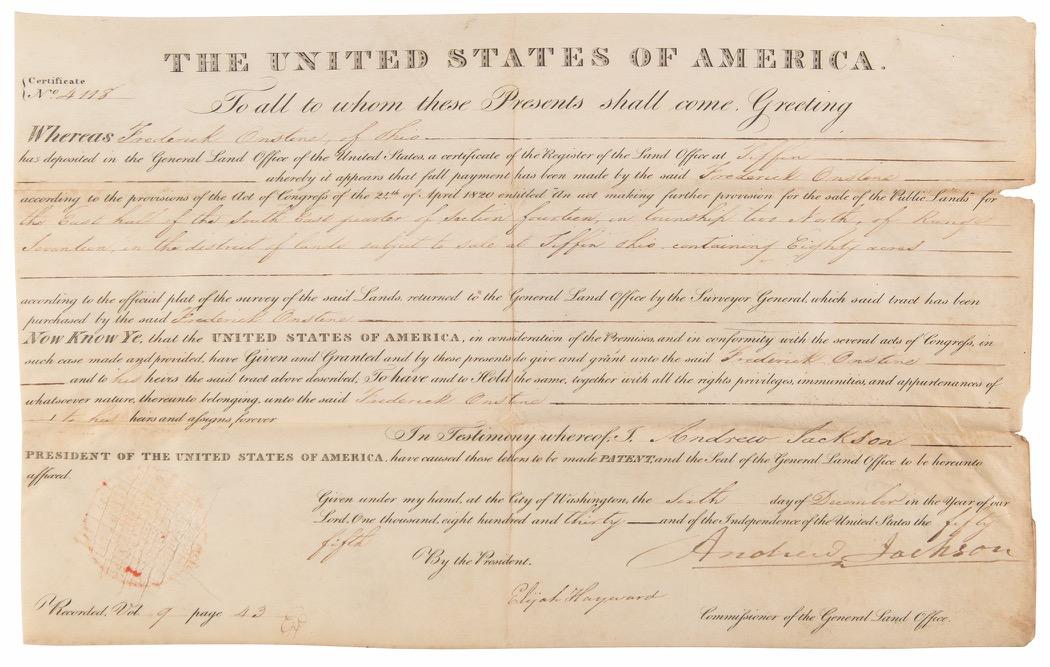 THE UNITED STATES OF AMERICA.
Certificate
No. 4118
To all to whom these Presents shall come, Greeting
Whereas Frederick Onstene of Ohio
has deposited in the General Land Office of the United States, a certificate of the Register of the Land Office at Tiffin
whereby it appears that full payment has been made by the said Frederick Onstene
according to the provisions of the Act of Congress of the 24th of April 1820 entitled "An act making further provision for the sale of the Public Lands" for
the East half of the South East quarter of Section fourteen, in township two North, of Range
Seventeen, in the district of lands subject to sale at Tiffin Ohio containing Eighty acres
according to the official plat of the survey of the said Lands, returned to the General Land Office by the Surveyor General, which said tract has been
purchased by the said Frederick Onstene
Now Know Ye, that the UNITED STATES OF AMERICA, in consideration of the Premises, and in conformity with the several acts of Congress, in
such case made and provided, have Given and Granted and by these presents do give and grant unto the said Frederick Onstene
and to his heirs the said tract above described, To have and to Hold the same, together with all the rights privileges, immunities, and appurtenances of
whatsoever nature, thereunto belonging, unto the said Frederick Onstene
to his heirs and assigns, forever
In Testimony whereof, I, Andrew Jackson
PRESIDENT OF THE UNITED STATES OF AMERICA, have caused these letters to be made PATENT, and the Seal of the General Land Office to be hereunto
affixed.
Given under my hand, at the City of Washington, the sixth day of December in the Year of our
Lord, One thousand, eight hundred and thirty and of the Independence of the United States the fifty
fifth
Andrew Jackson
By the President.
Elijah Hayward
Commissioner of the General Land Office.
Recorded, Vol 9 page 43